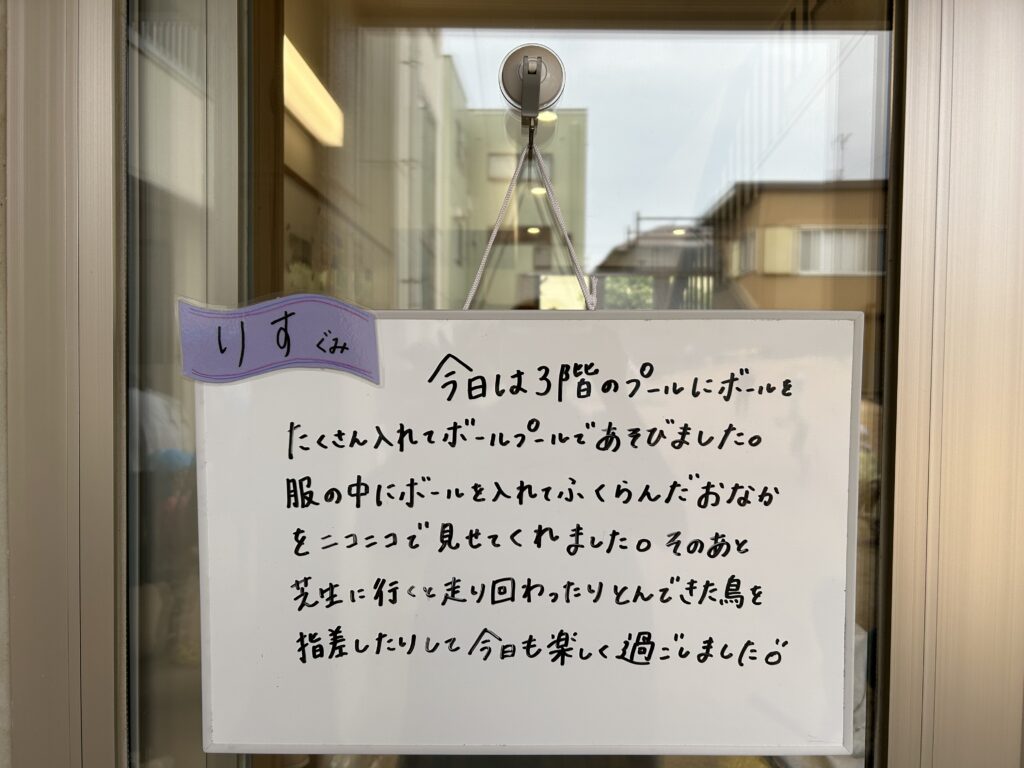 りす ぐみ
今日は3階のプールにボールを
たくさん入れてボールプールであそびました。
服の中にボールを入れてふくらんだおなか
をニコニコで見せてくれました。そのあと
芝生に行くと走り回わったりとんできた鳥を
指差したりして今日も楽しく過ごしました